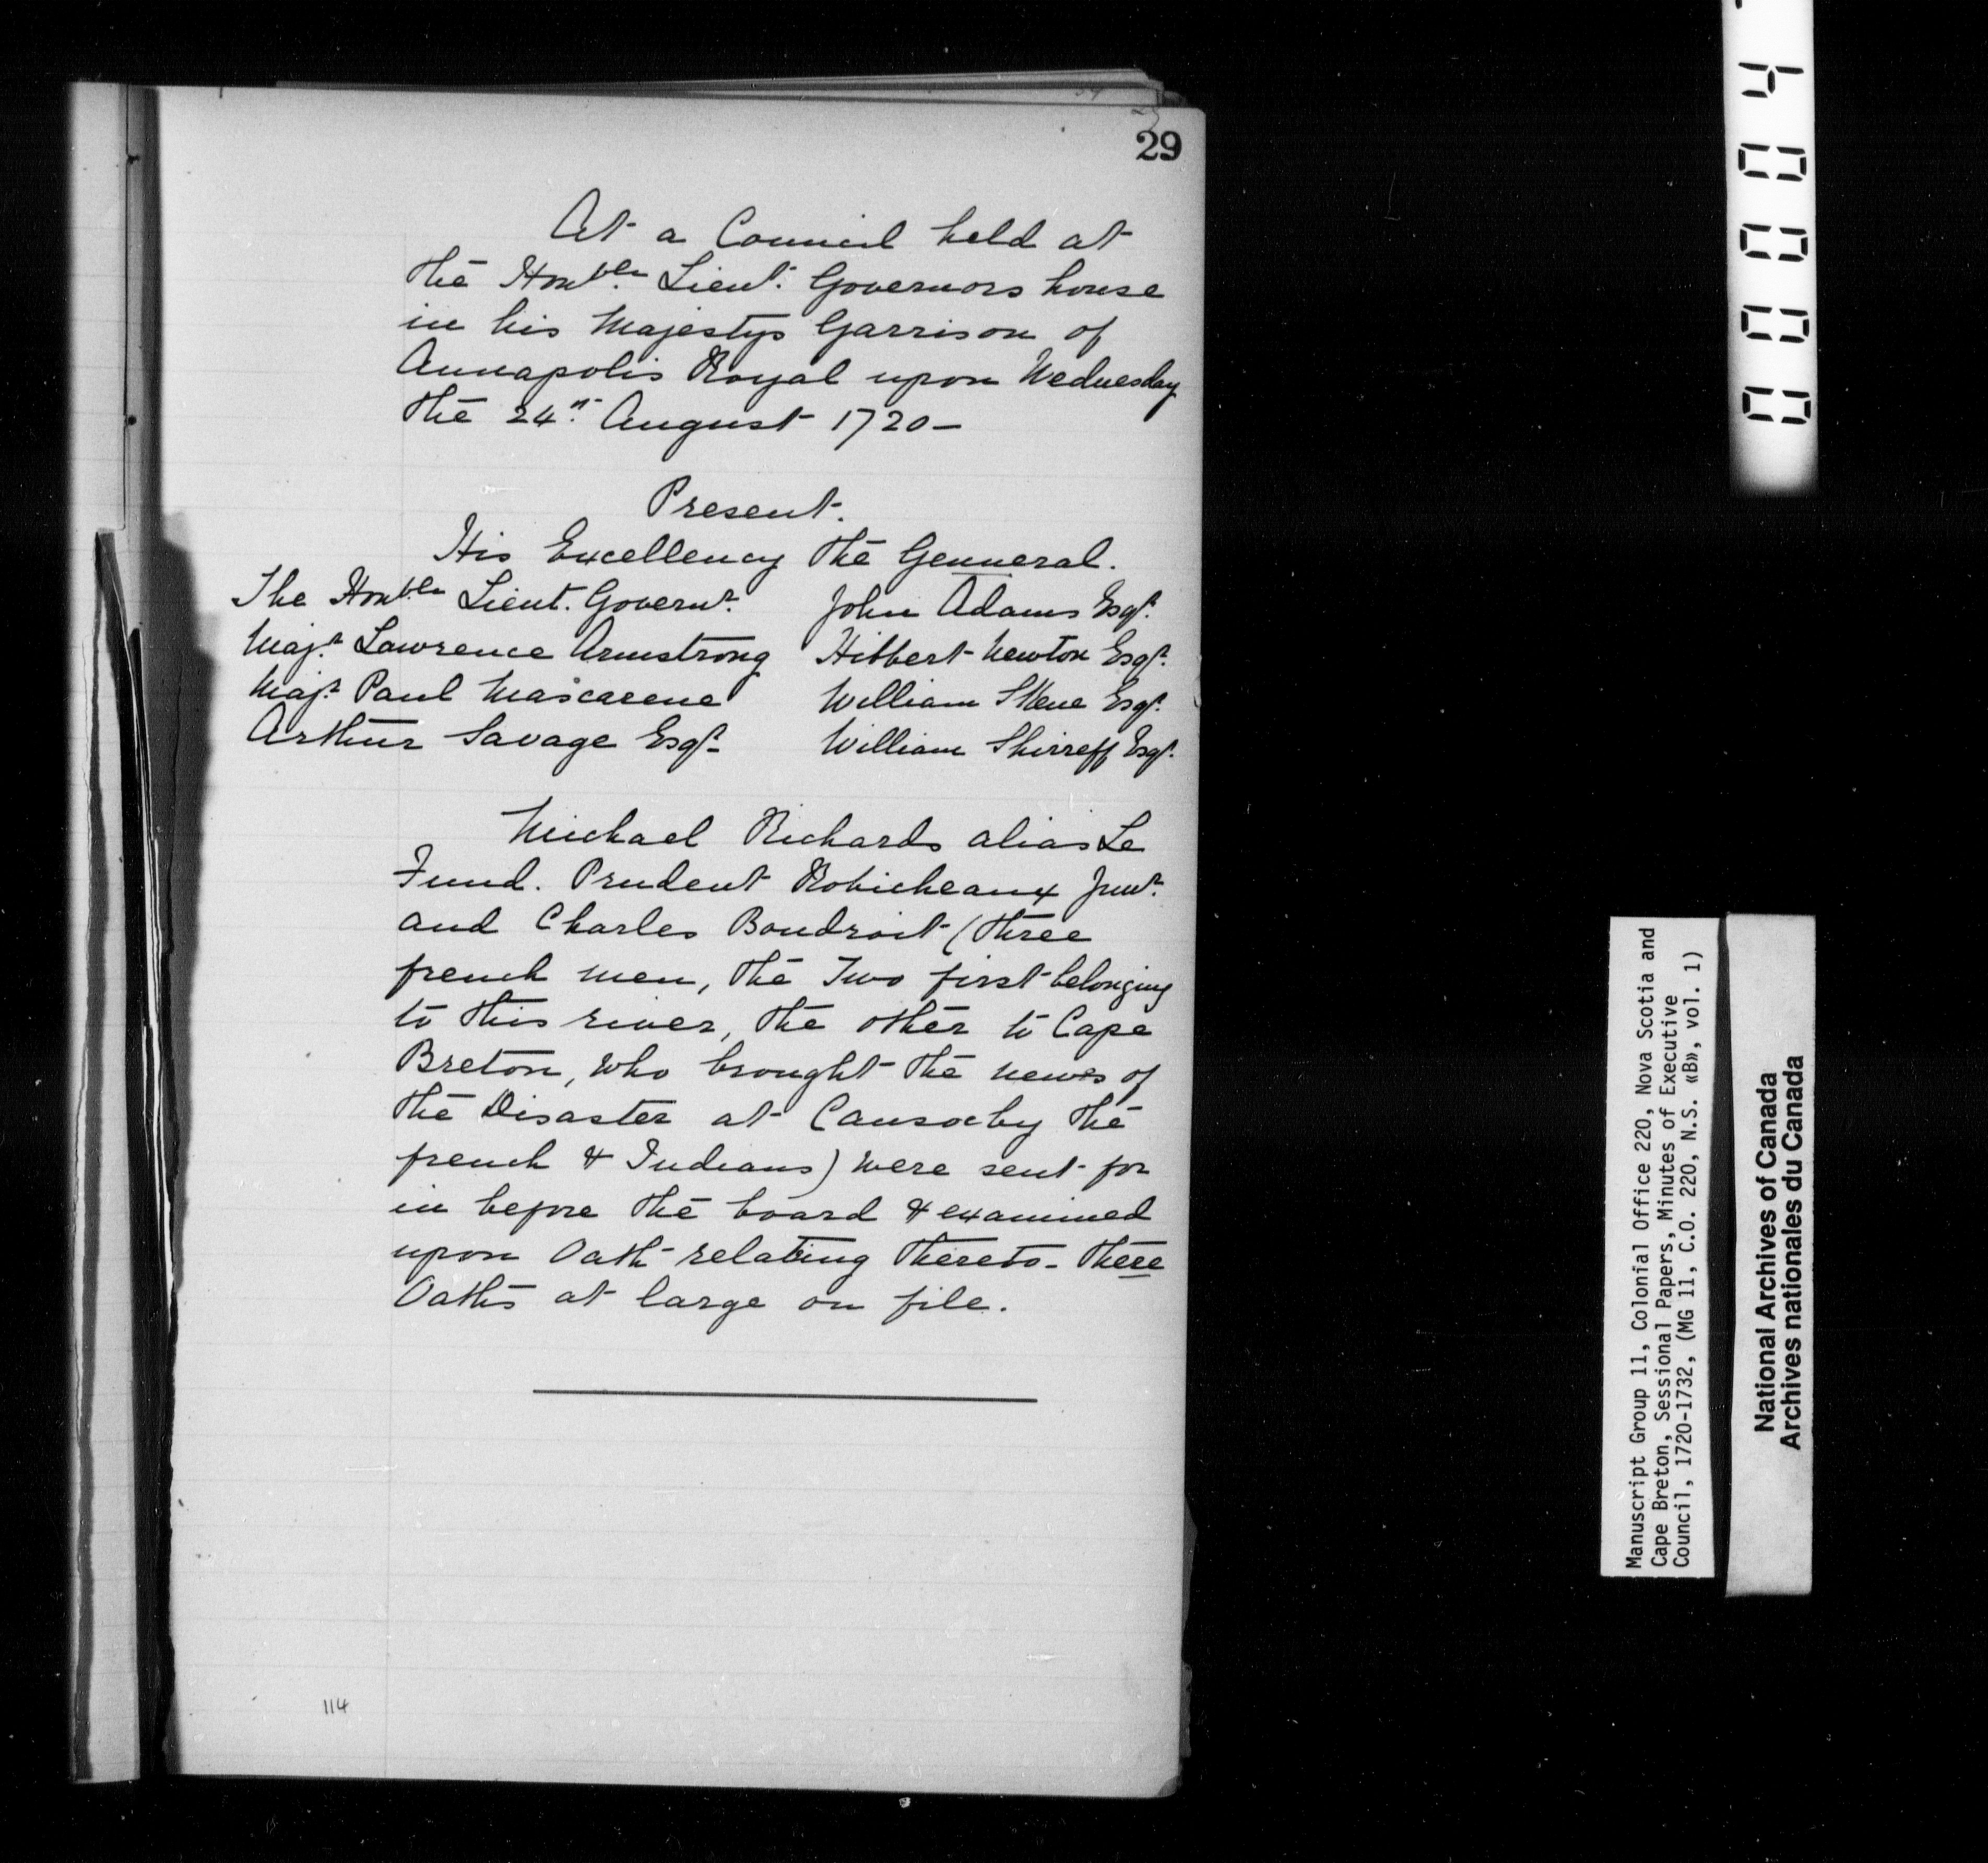 29
At a Council held at
the Honble. Lieut. Governors house
in his Majestys Garrison of
Annapolis Royal upon Wednesday
the 24th. August 1720 —
Present.
His Excellency the Genneral.
The Honble Lieut. Governr. John Adams Esqr.
Majr. Lawrence Armstrong Hibbert Newton Esqr.
Majr. Paul Mascarene William Skene Esqr.
Arthur Savage Esqr. William Shirreff Esqr.
Michael Richards alias Le
Fund. Prudent Robicheaux Junr.
and Charles Boudroit (three
french men, the Two first belonging
to this river, the other to Cape
Breton, who brought the news of
the Disaster at Canso by the
french & Indians) were sent for
in before the board & examined
upon Oath relating thereto - there
Oaths at large on file.
114
Manuscript Group 11, Colonial Office 220, Nova Scotia and
Cape Breton, Sessional Papers, Minutes of Executive
Council, 1720-1732, (MG 11, C.O. 220, N.S. «B», vol. 1)
National Archives of Canada
Archives nationales du Canada